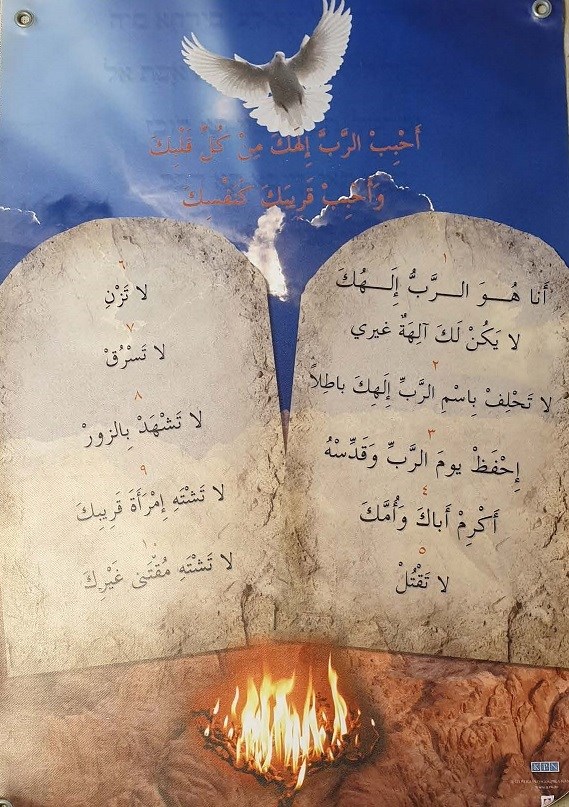 أَحْبِبْ الرَّبَّ إِلَهَكَ مِنْ كُلِّ قَلْبِكَ
وَأَحْبِبْ قَرِيبَكَ كَنَفْسِكَ
١
أَنا هُـــوَ الــرَّبُّ إِلَـــهُكَ
لا يَكُنْ لَكَ آلِهَةٌ غيري
٢
لا تَحْلِفْ بِاسْمِ الرَّبِّ إِلَهِكَ باطِلاً
٣
إِحْفَظْ يومَ الرَّبِّ وَقَدِّسْهُ
٤
أَكْرِمْ أَباكَ وَأُمَّكَ
٥
لا تَقْتُلْ
٦
لا تَزْنِ
٧
لا تَسْرُقْ
٨
لا تَشْهَدْ بِالزورْ
٩
لا تَشْتَهِ إِمْرَأَةَ قَرِيبِكَ
١٠
لا تَشْتَهِ مُقْتَنى غَيْرِكَ